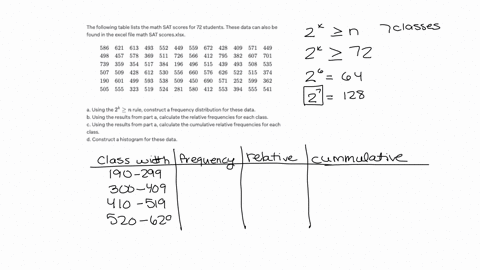 The following table lists the math SAT scores for 72 students. These data can also be
found in the excel file math SAT scores.xlsx.
586 621 613 493 552 449 559 672 428 409 571 449
498 457 578 369 511 726 566 412 795 382 607 701
739 359 354 517 384 196 496 515 439 493 508 535
507 509 428 612 530 556 660 576 626 522 515 374
190 601 499 593 538 509 450 690 571 252 599 362
505 555 323 519 524 281 580 412 553 394 555 541
a. Using the 2^k ≥ n rule, construct a frequency distribution for these data.
b. Using the results from part a, calculate the relative frequencies for each class.
c. Using the results from part a, calculate the cumulative relative frequencies for each
class.
d. Construct a histogram for these data.
2^k ≥ n 7 classes
2^k ≥ 72
2^6 = 64
2^7 = 128
class width frequency relative cummulative
190-299
300-409
410-519
520-629